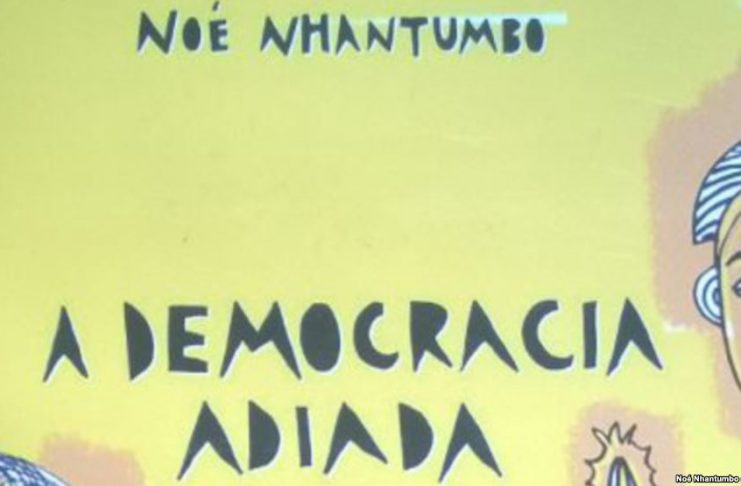 NOÉ NHANTUMBO
A DEMOCRACIA
ADIADA
Noé Nhantumbo